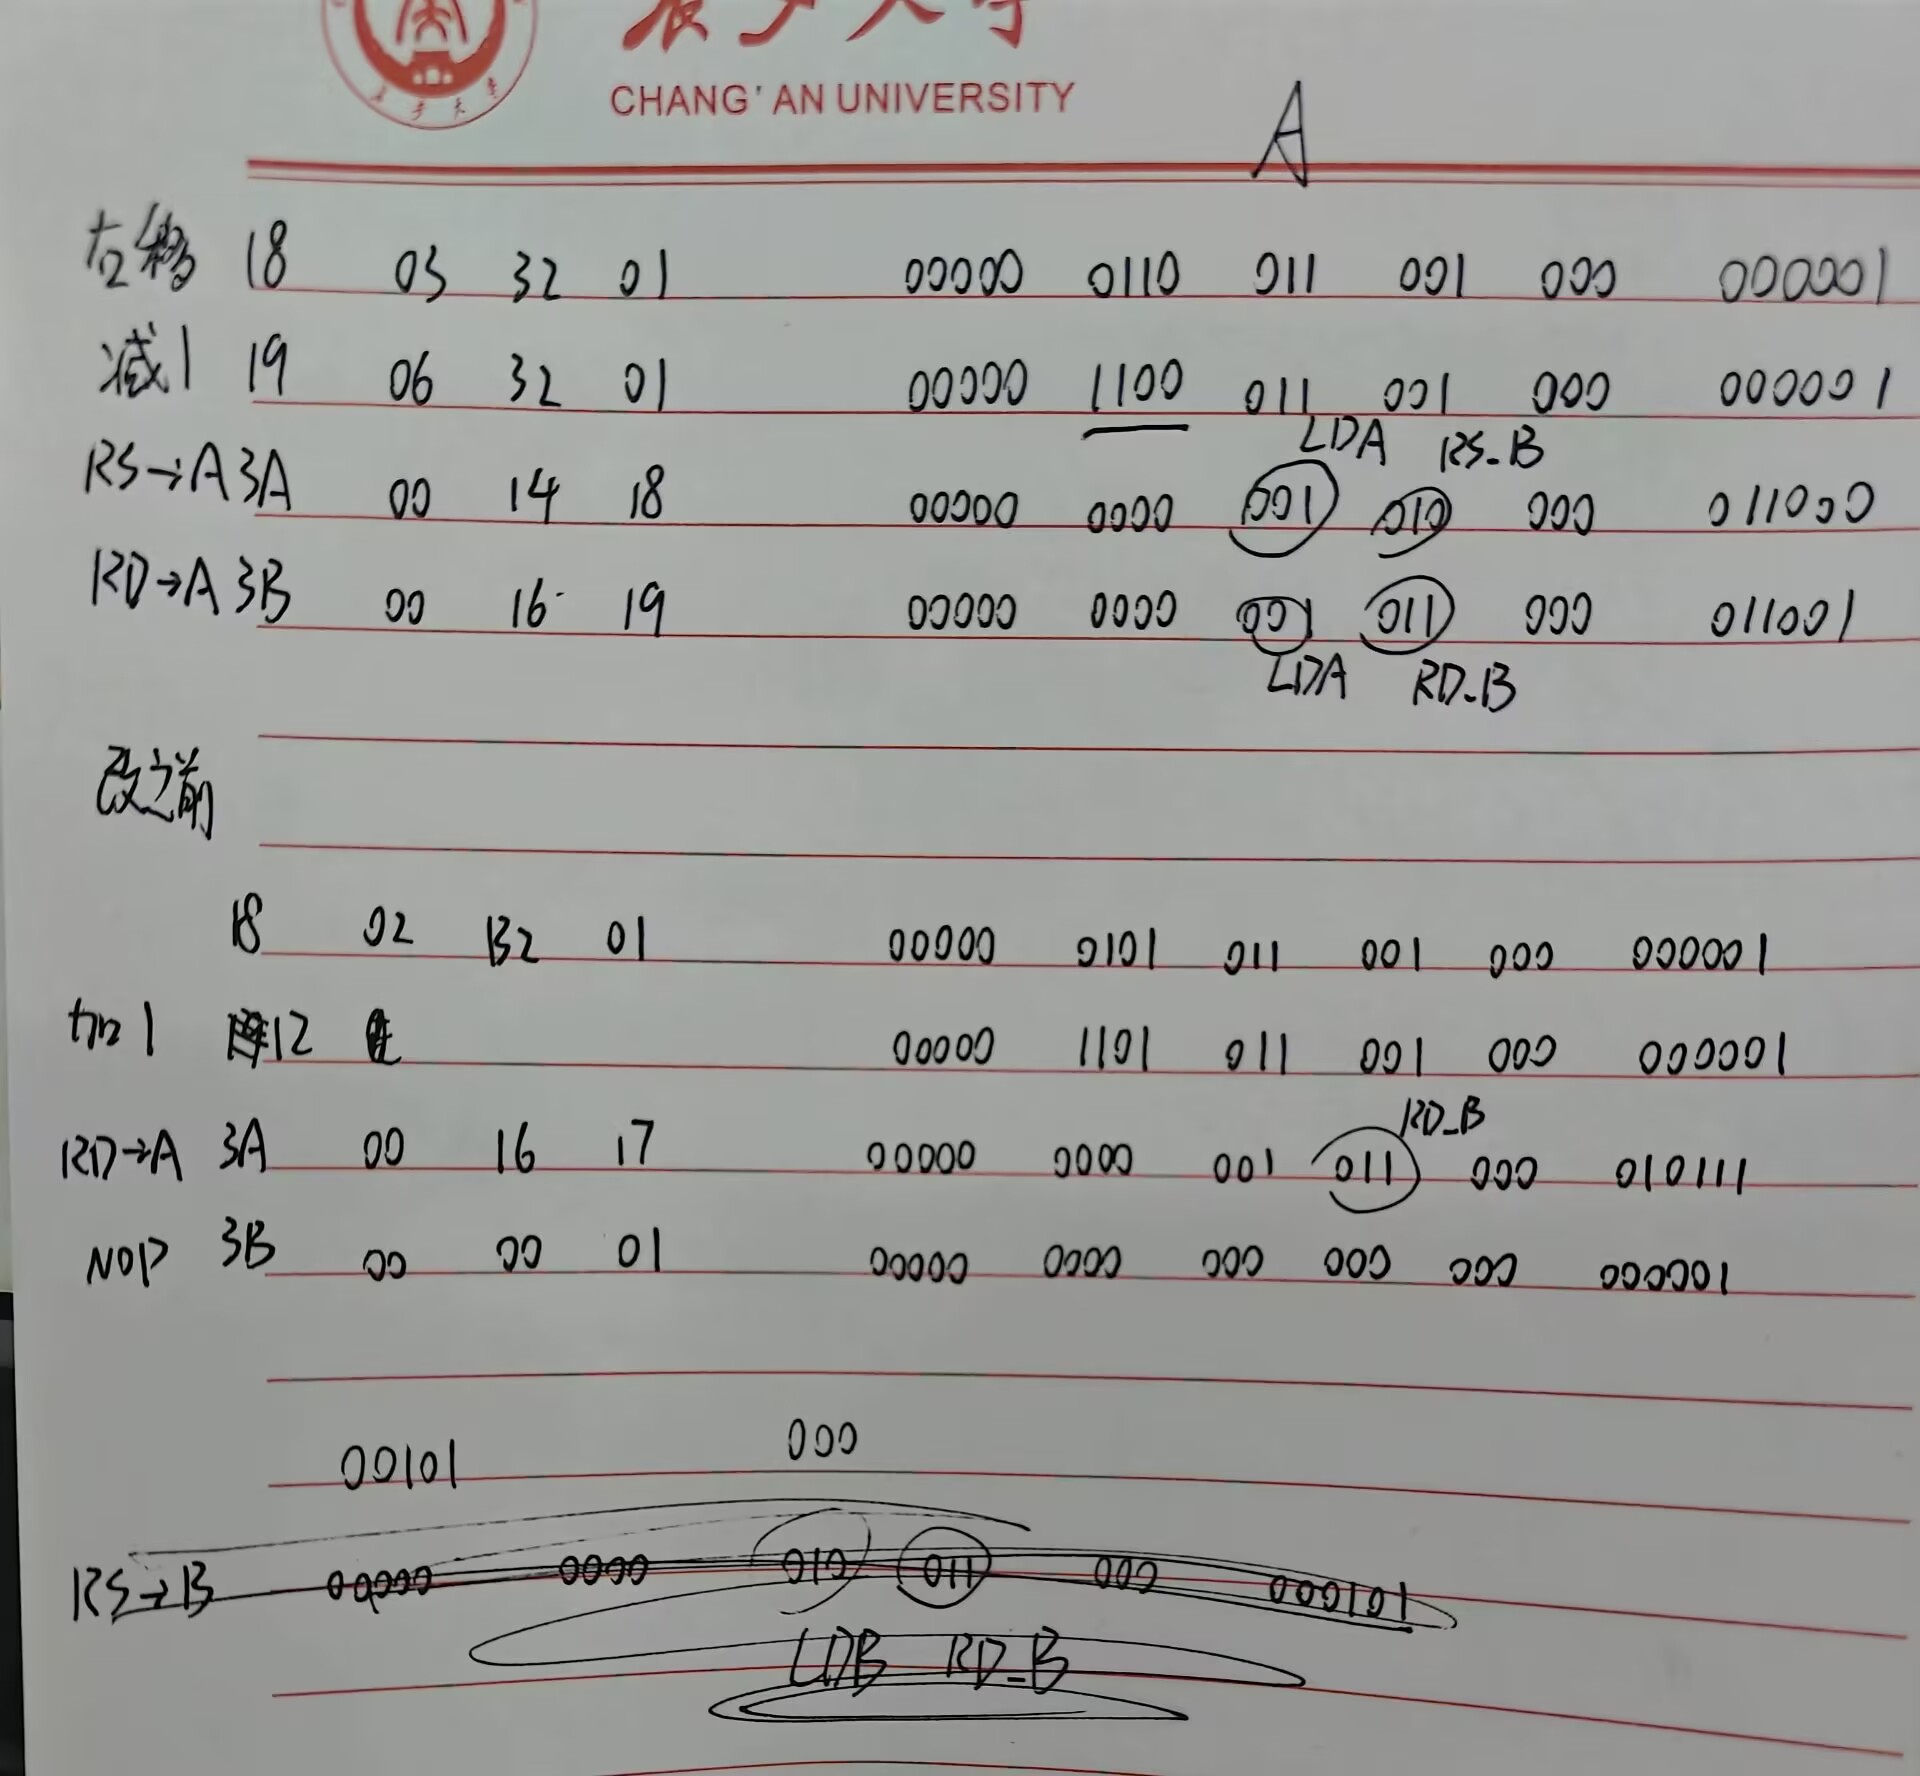 CHANG'AN UNIVERSITY
A
左移 18 03 32 01 00000 0110 011 001 000 000001
减1 19 06 32 01 00000 1100 011 001 000 000001
LDA RS_B
RS→A 3A 00 14 18 00000 0000 001 010 000 011000
RD→A 3B 00 16 19 00000 0000 001 011 000 011001
LDA RD_B
改之前
18 02 B2 01 00000 0101 011 001 000 000001
加1 12 00000 1101 011 001 000 000001
RD_B
RD→A 3A 00 16 17 00000 0000 001 011 000 010111
NOP 3B 00 00 01 00000 0000 000 000 000 000001
00101 000
RS→B 00000 0000 010 011 000 000101
LDB RD_B